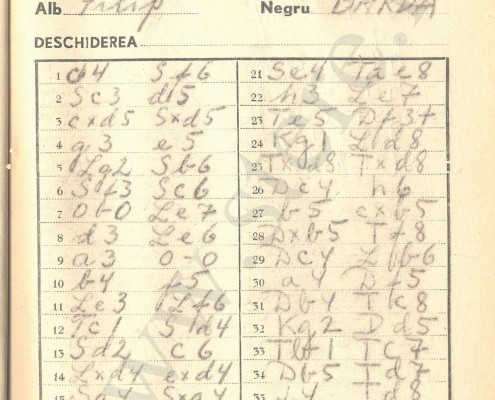 Alb Filip Negru
DESCHIDEREA
1 c4 Sf6
2 Sc3 d5
3 cxd5 Sxd5
4 g3 e5
5 Lg2 Sb6
6 Sf3 Sc6
7 0-0 Le7
8 d3 Le6
9 a3 0-0
10 b4 f5
11 Le3 Lf6
12 Tc1 Sd4
13 Sd2 c6
14 Lxd4 exd4
15 Sa4 Sxa4
21 Se4 Tae8
22 h3 Le7
23 Te5 Df3+
24 Kg1 Ld8
25 Txd8 Txd8
26 Dc4 h6
27 b5 cxb5
28 Dxb5 Tf8
29 Dc4 Lb6
30 a4 Df5
31 Db4 Tc8
32 Kg2 Dd5
33 Tbf1 Tc7
34 Db5 Td7
35 f4 Td8